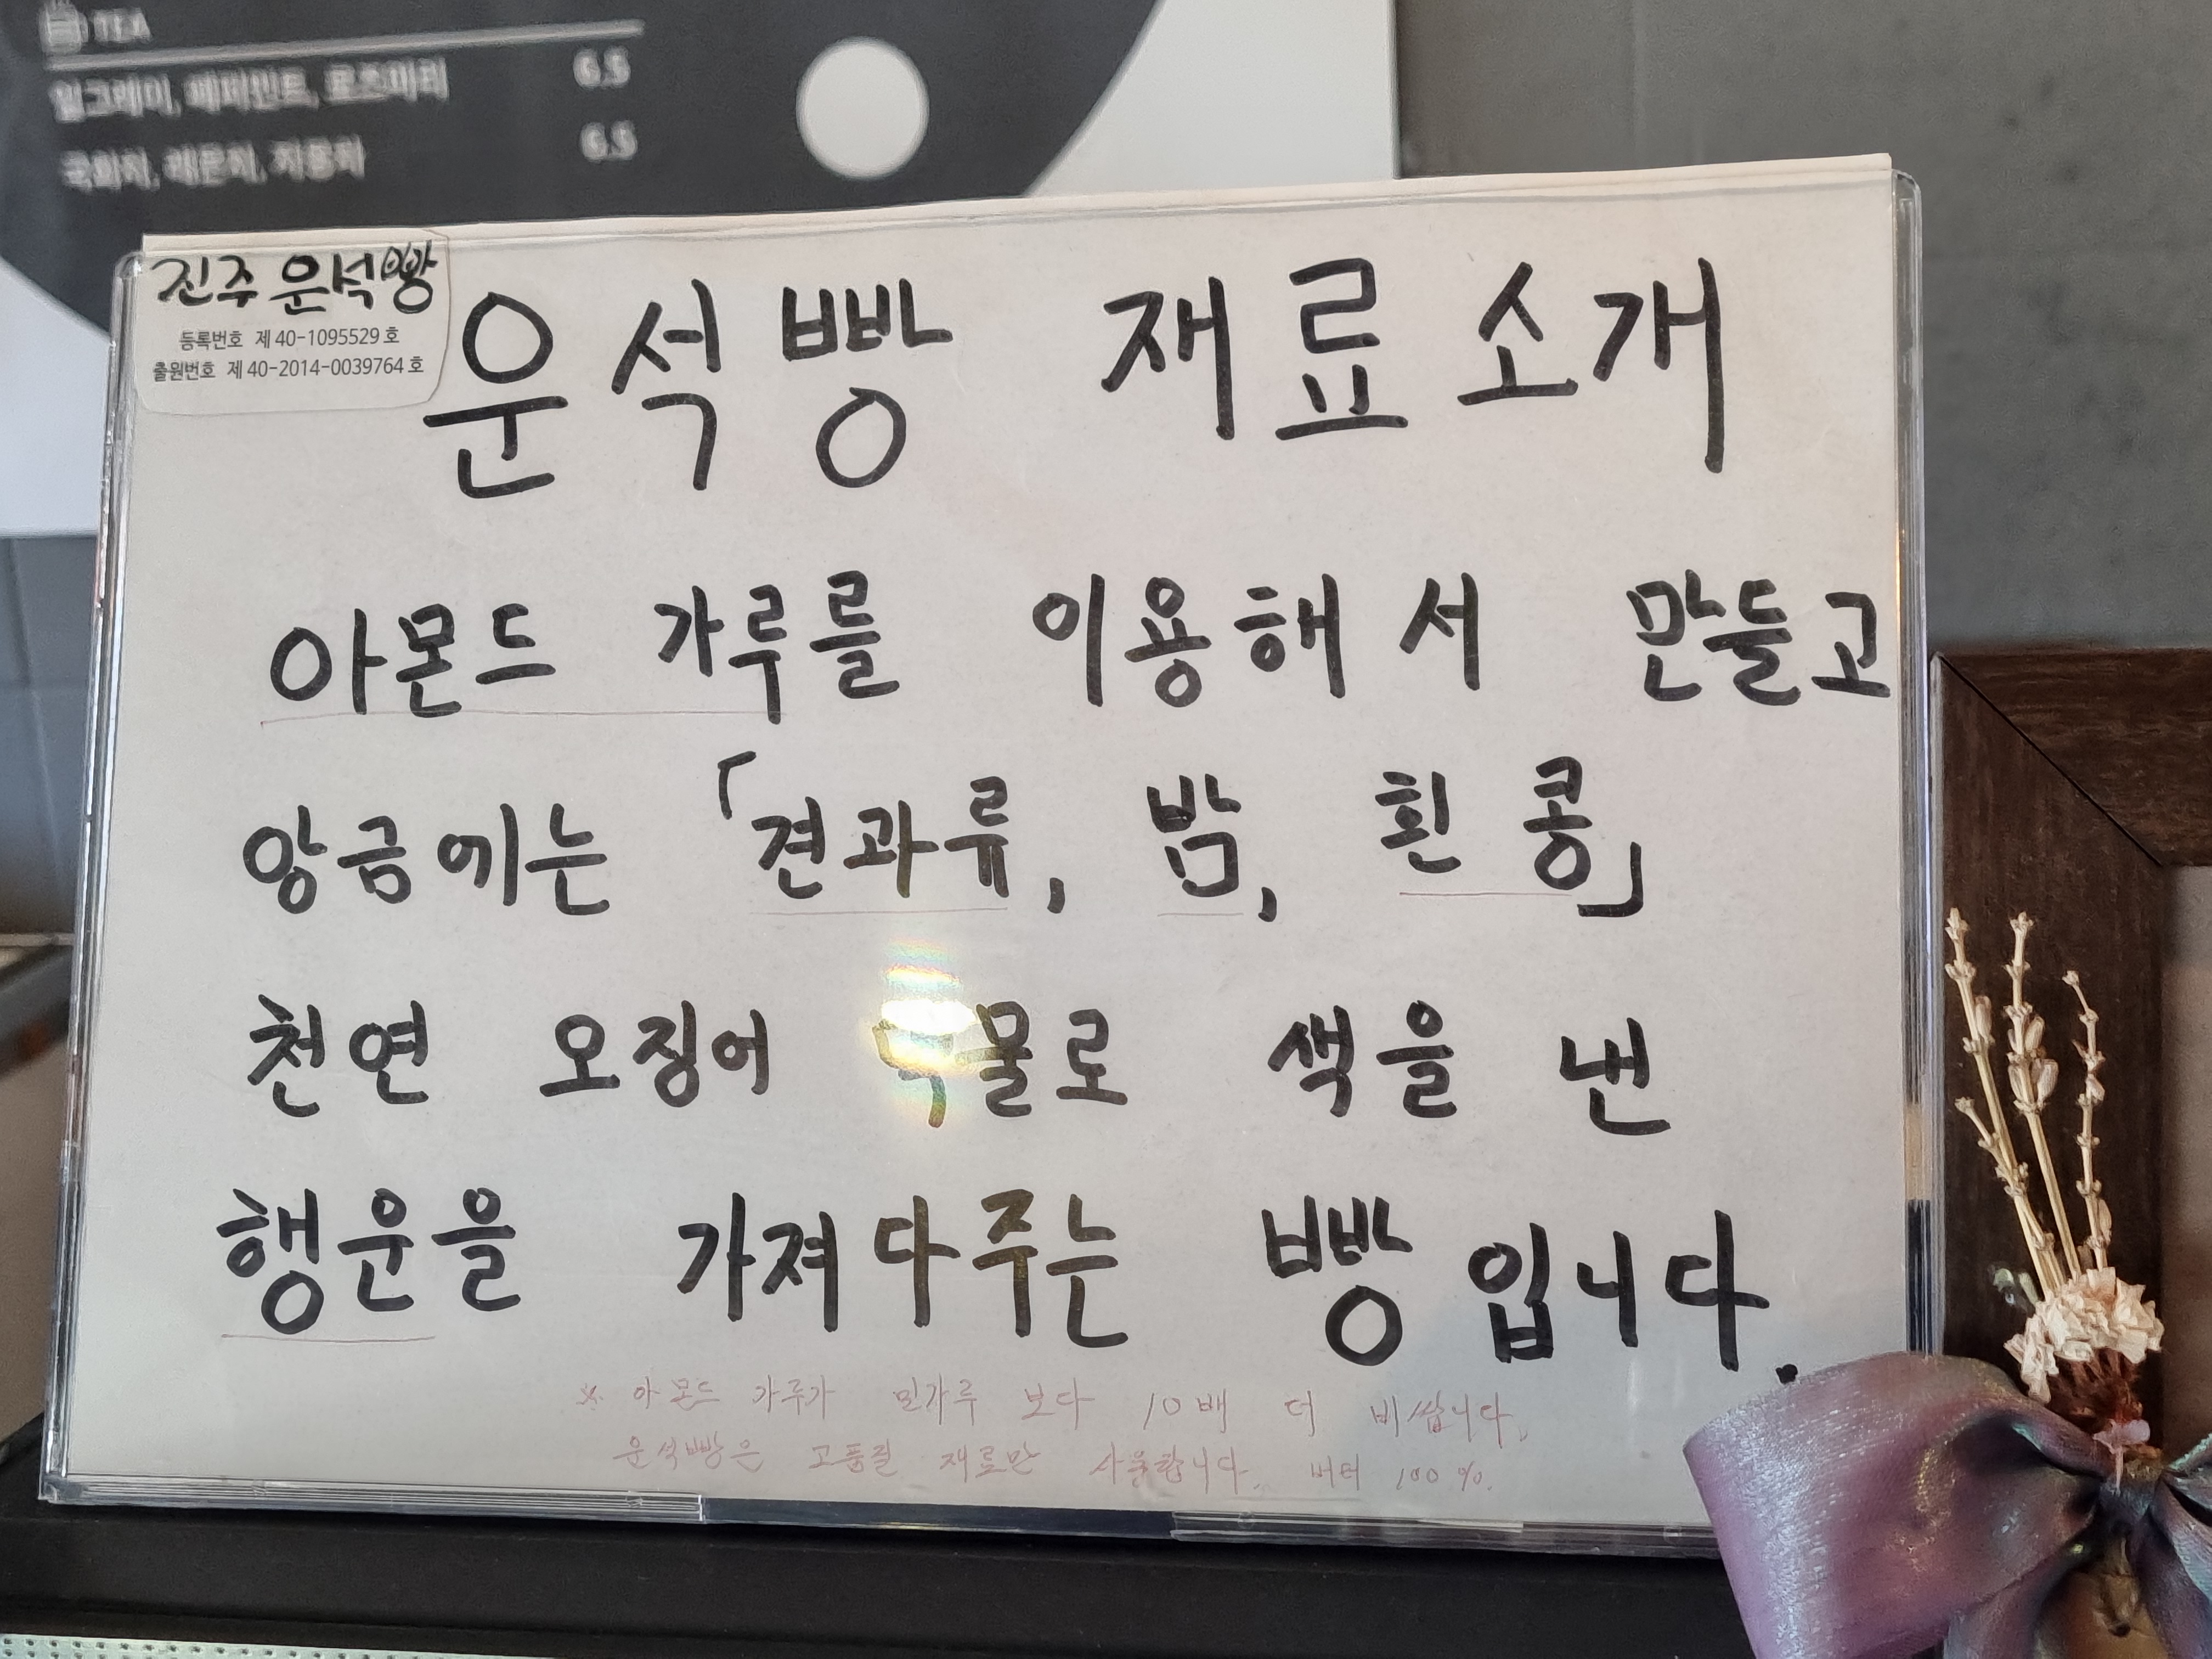 TEA
얼그레이, 페퍼민트, 로즈마리 6.5
국화차, 레몬차, 자몽차 6.5
진주 운석빵
등록번호 제 40-1095529 호
출원번호 제 40-2014-0039764 호
운석빵 재료소개
아몬드 가루를 이용해서 만들고
앙금에는 「견과류, 밤, 흰 콩」
천연 오징어 먹물로 색을 낸
행운을 가져다주는 빵입니다.
※ 아몬드 가루가 밀가루 보다 10배 더 비쌉니다.
운석빵은 고품질 재료만 사용합니다. 버터 100%.